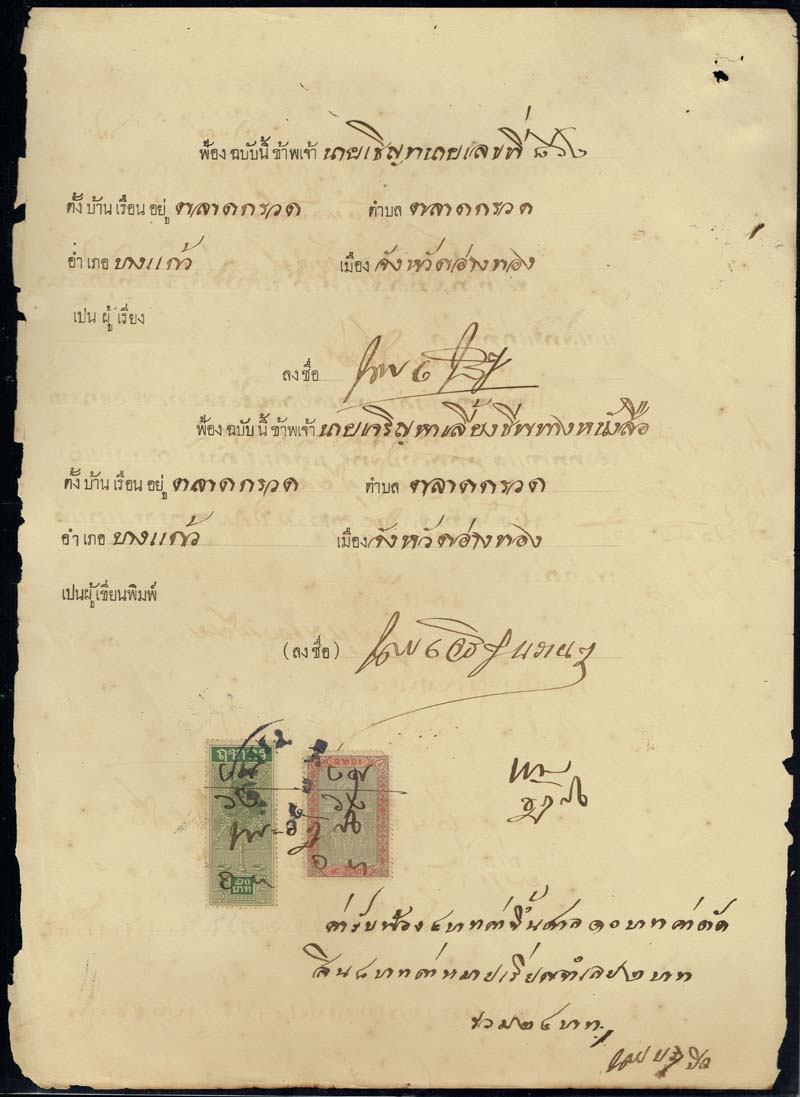 ฟ้อง ฉบับนี้ ข้าพเจ้า นายเชิญ ทนายเลขที่ ๘๖๒
ตั้งบ้านเรือนอยู่ ตลาดกรวด ตำบล ตลาดกรวด
อำเภอ บางแก้ว เมือง จังหวัดอ่างทอง
เปน ผู้ เรียง
ลงชื่อ
ฟ้อง ฉบับนี้ ข้าพเจ้า นายเจริญ หาเลี้ยงชีพทางหนังสือ
ตั้งบ้านเรือนอยู่ ตลาดกรวด ตำบล ตลาดกรวด
อำเภอ บางแก้ว เมือง จังหวัดอ่างทอง
เปนผู้เขียนพิมพ์
(ลงชื่อ)
ฤชากร
๒๐
บาท
ค่ารับฟ้อง ๔ บาท ค่าขึ้นศาล ๑๐ บาท ค่าตัด
สิน ๘ บาท ค่าหมายเรียกจำเลย ๒ บาท
รวม ๒๔ บาท